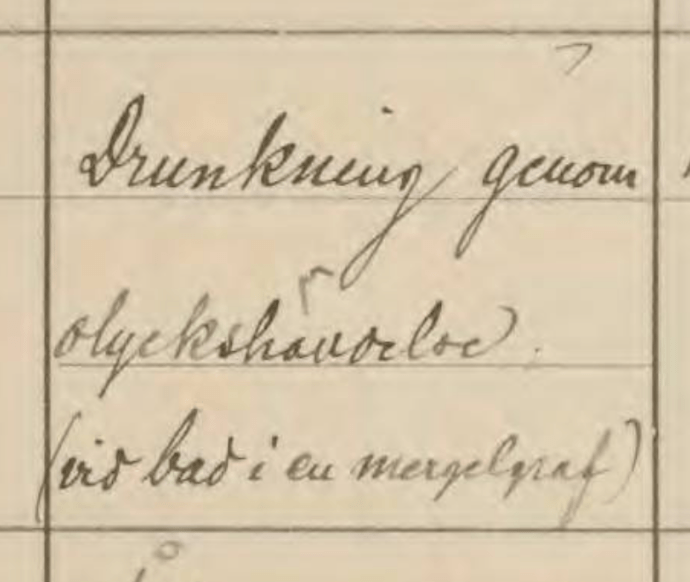 Drunkning genom
olyckshändelse.
(vid bad i en mergelgraf)